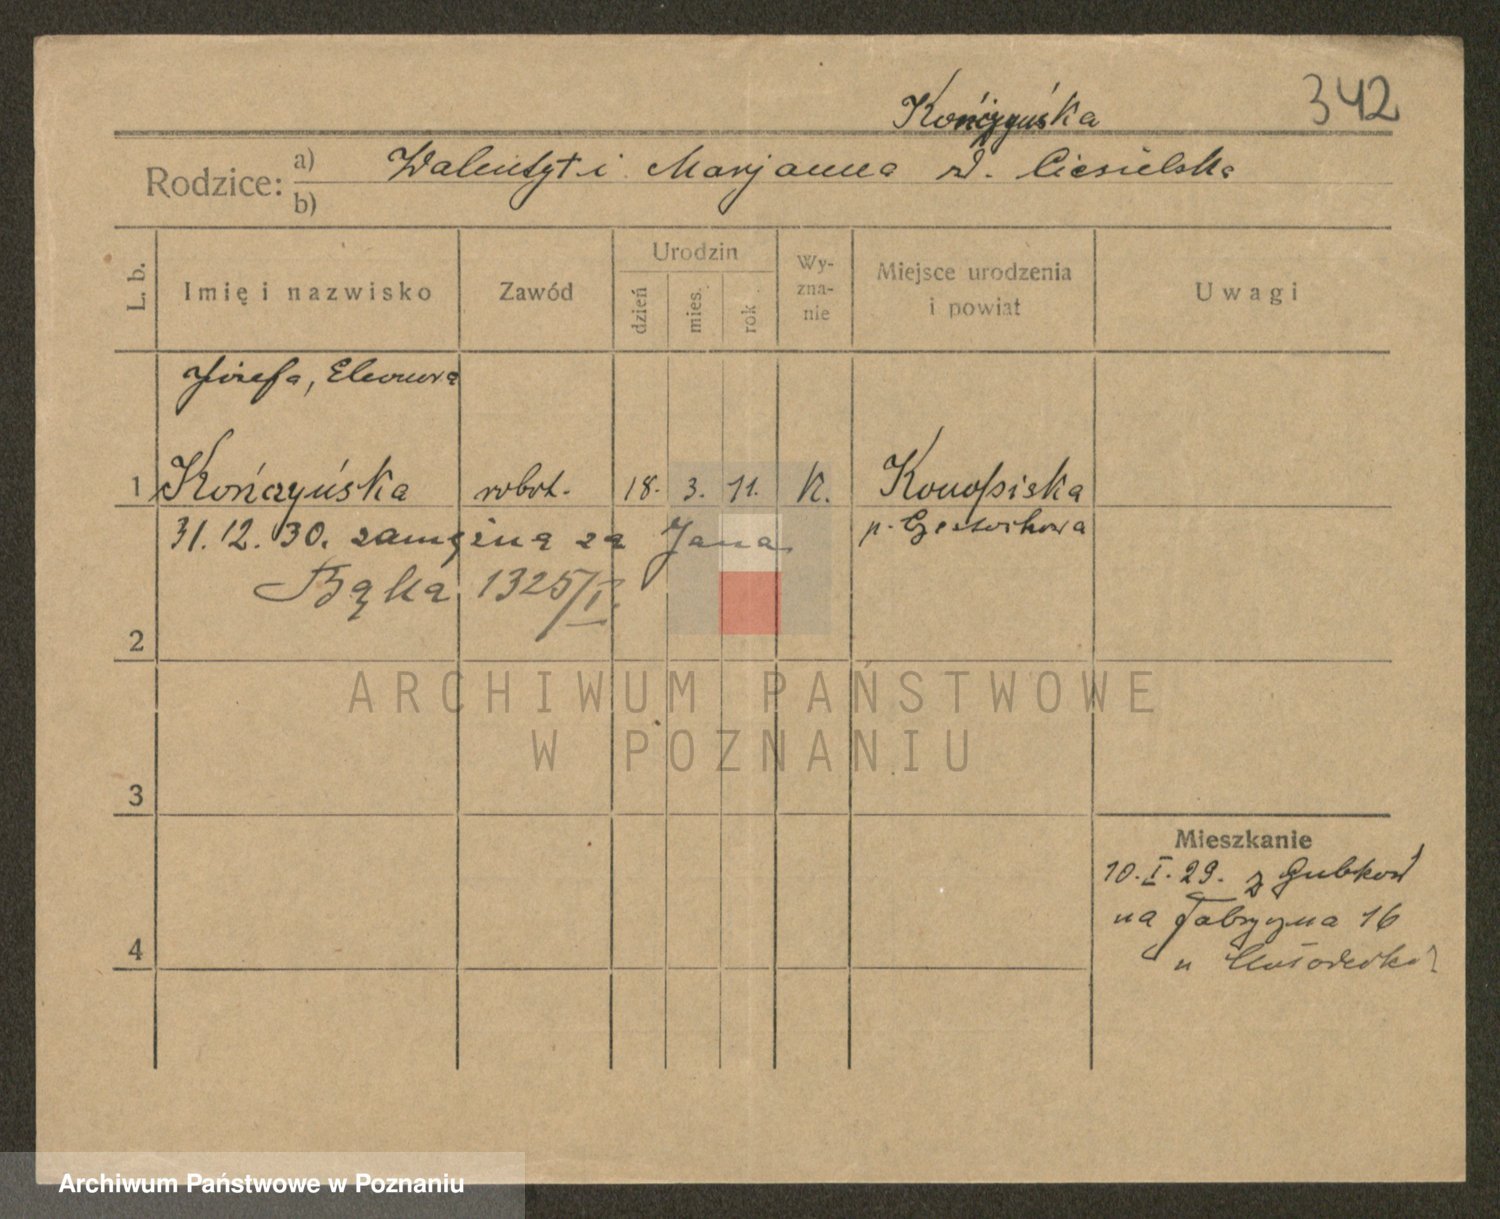 342
Kończyńska
Rodzice: a) Walenty i Marjanna z d. Ciesielska
b)
L. b.
Imię i nazwisko
Zawód
Urodzin
dzień
mies.
rok
Wy-
zna-
nie
Miejsce urodzenia
i powiat
Uwagi
Józefa, Eleonora
1 Kończyńska robot. 18. 3. 11. K. Konopiska
31.12.30. zamężna za Jana p. Częstochowa
Bąka 1325/I.
2
3
4
Mieszkanie
10.I.29. z
na Fabryczna 16
u
ARCHIWUM PAŃSTWOWE
W POZNANIU
Archiwum Państwowe w Poznaniu